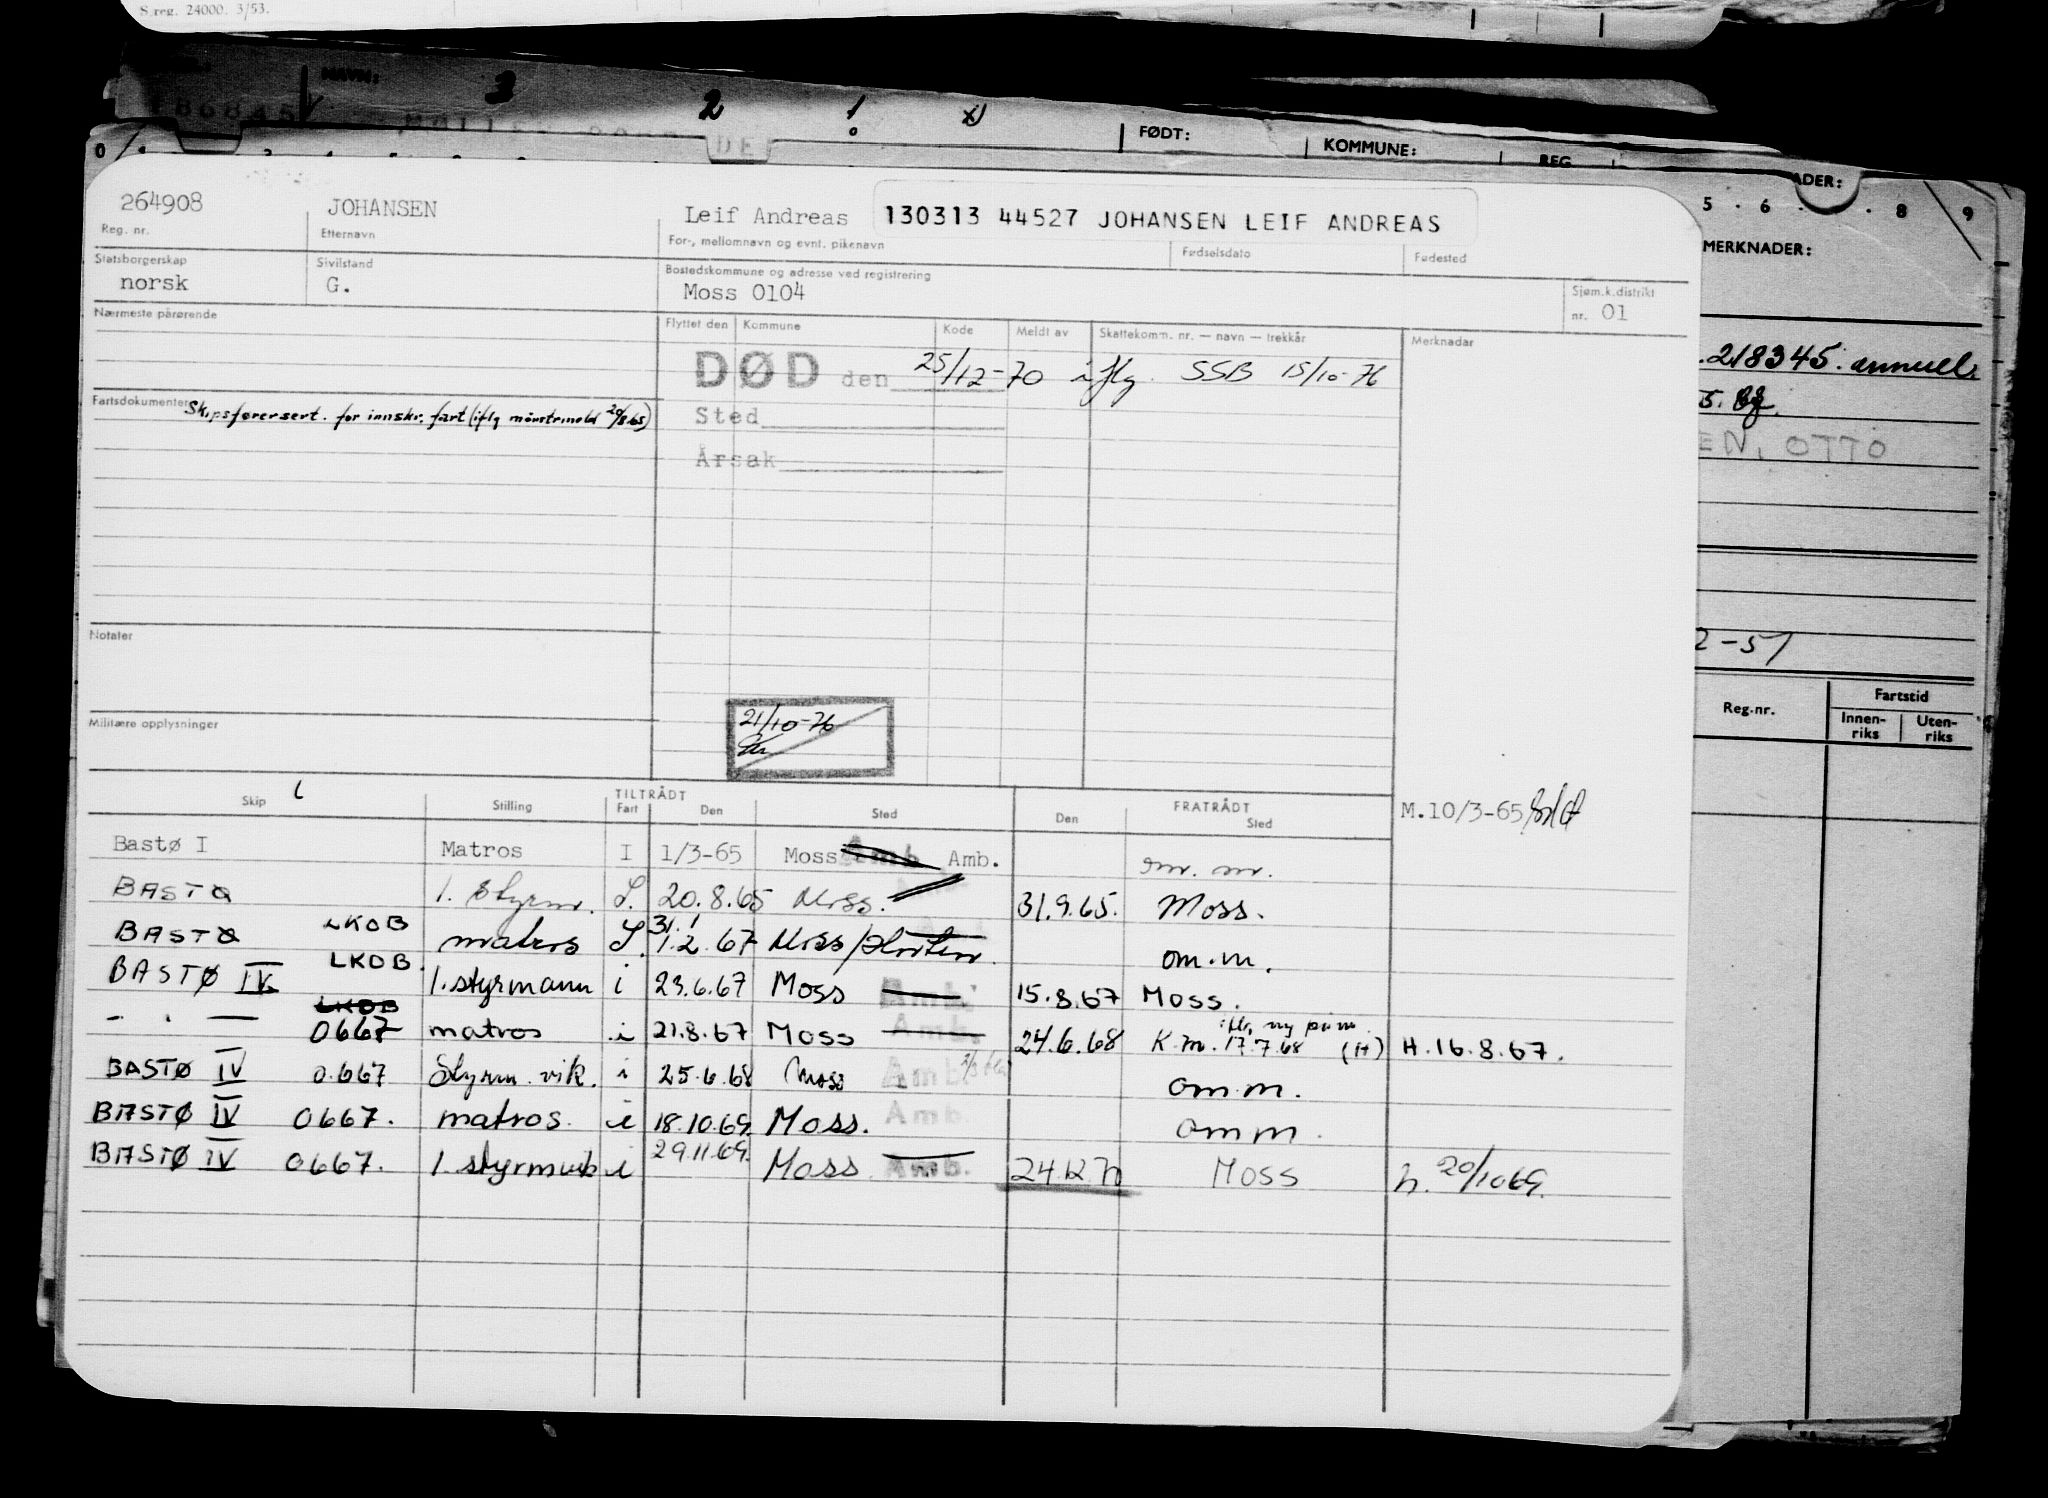 S.reg. 24000. 3/53.
NAVN: 3 2 1
86845
FØDT: KOMMUNE: REG
264908 JOHANSEN Leif Andreas 130313 44527 JOHANSEN LEIF ANDREAS
Reg. nr. Etternavn For-, mellomnavn og evnt. pikenavn Fødselsdato Fødested
Statsborgerskap Sivilstand Bostedskommune og adresse ved registrering Sjøm.k.distrikt
norsk G. Moss 0104 nr. 01
Nærmeste pårørende Flyttet den Kommune Kode Meldt av Skattekomm. nr. — navn — trekkår Merknader
DØD den 25/12-70 iflg. SSB 15/10-76
Fartsdokumenter Skipsførersert. for innskr. fart (iflg mønstrmeld 20/8.65)
Sted
Årsak
Notater
Militære opplysninger
21/10-76
TILTRÅDT FRATRÅDT
Skip Stilling Fart Den Sted Den Sted
M.10/3-65
Bastø I Matros I 1/3-65 Moss Amb Amb. om. m.
BASTØ 1. styrm. I. 20.8.65 Moss. 31.9.65. Moss.
BASTØ LKOB matros I. 31.1 1.2.67 Moss/Horten om.m.
BASTØ IV. LKOB. 1.styrmann i 23.6.67 Moss Amb. 15.8.67 Moss.
- " — LKOB 0667 matros i 21.8.67 Moss Amb. 24.6.68 K.m. 17.7.68 (H) H.16.8.67.
BASTØ IV 0.667 Styrm. vik. i 25.6.68 Moss Amb. omm.
BASTØ IV 0667. matros. i 18.10.69. Moss. Amb. omm.
BASTØ IV 0667. 1. styrmvik i 29.11.69. Moss. Amb. 24.12.70 Moss h. 20/1069.
ADER:
5 . 6 . . 8 9
MERKNADER:
.218345. annull.
EN, OTTO
2-51
Reg.nr. Fartstid
Innen-riks Uten-riks